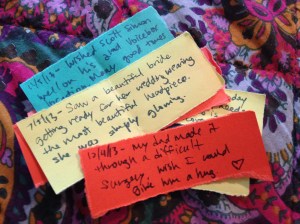 11/5/13 - wished Scott Simon
well on his
many good tunes
7/5/13 - Saw a beautiful bride
getting ready for her wedding wearing
the most beautiful headpiece.
she was simply glowing.
10/4/13 - my dad made it
through a difficult
surgery. wish I could
give him a hug. ♡